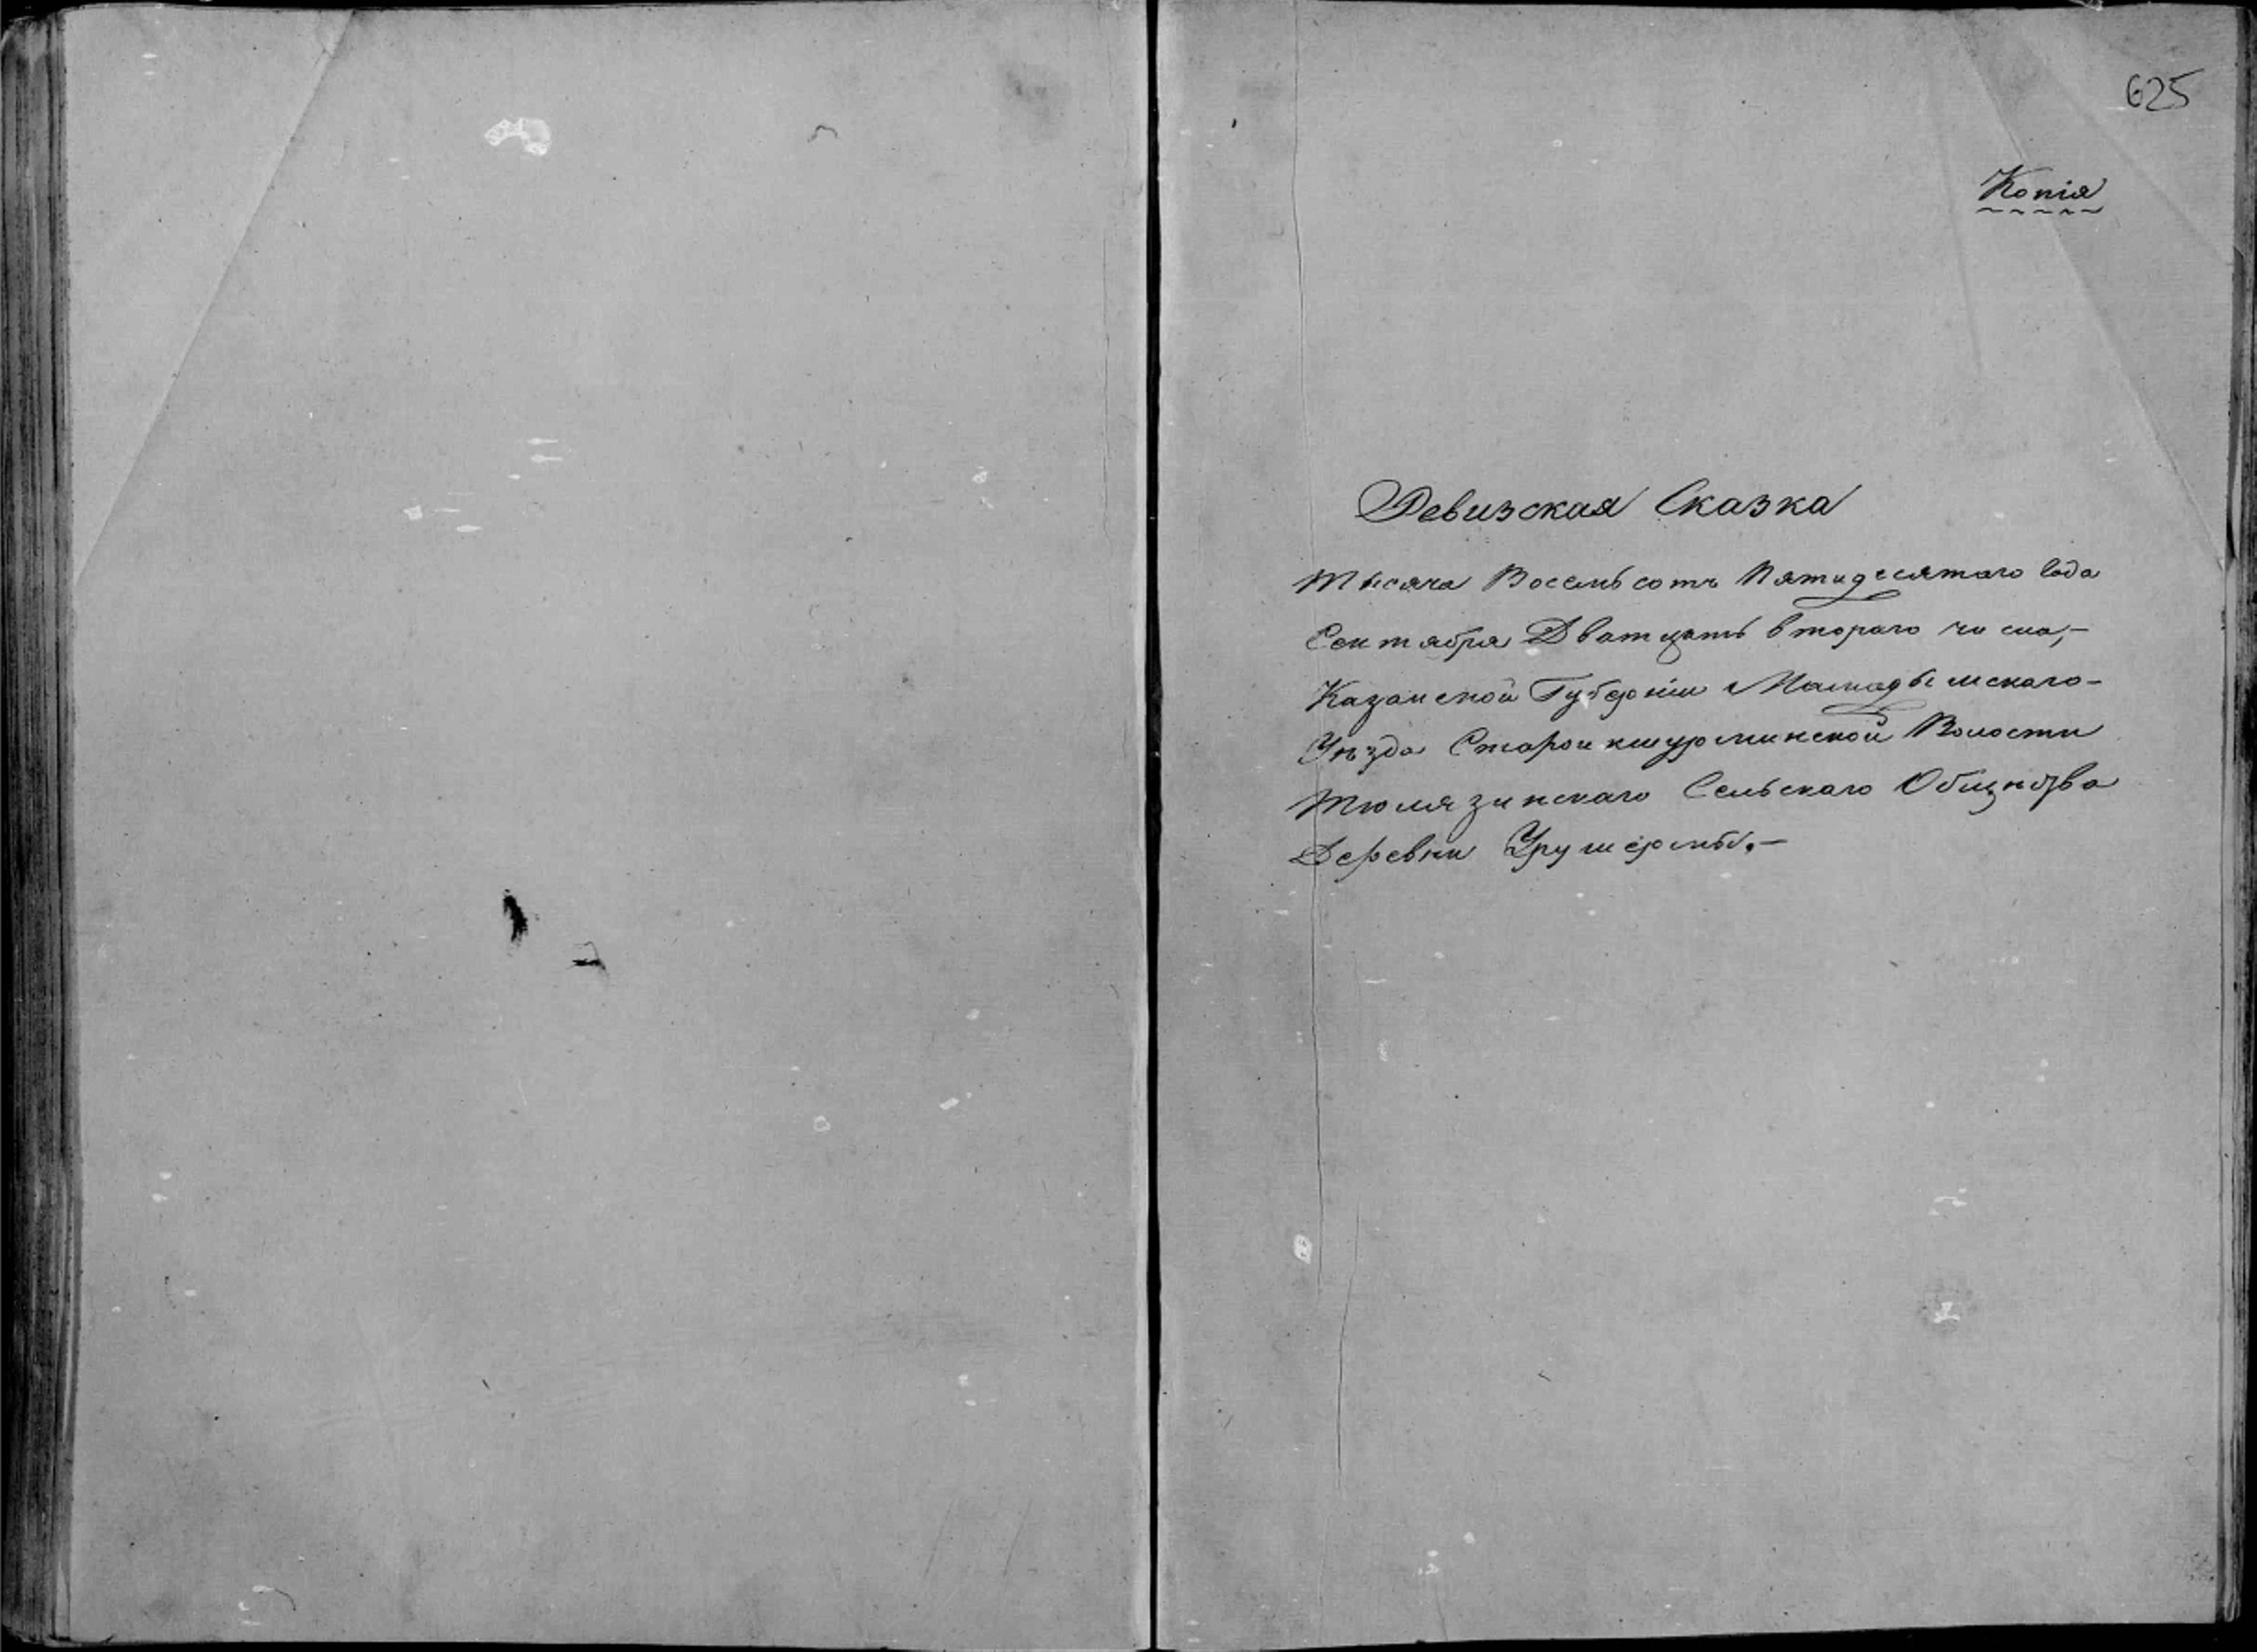 625
Копія
Ревизская Сказка
Тысяча Восемьсотъ Пятидесятаго Года
Сентября Дватцать втораго числа,-
Казанской Губерніи Мамадышскаго-
Уѣзда Староикшурминской Волости
Тюлязинскаго Сельскаго Общества
Деревни Урушермы.-